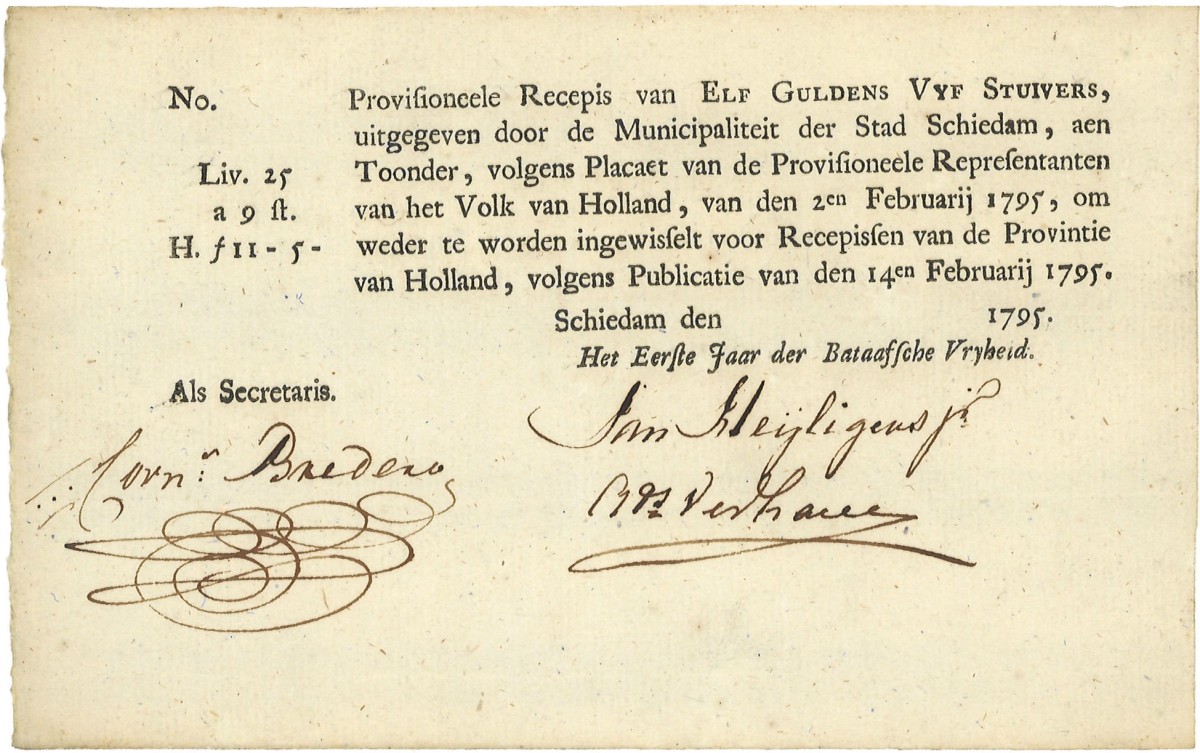 No.
Proviſioneele Recepis van ELF GULDENS VYF STUIVERS,
uitgegeven door de Municipaliteit der Stad Schiedam, aen
Liv. 25
Toonder, volgens Placaet van de Proviſioneele Repreſentanten
a 9 ſt.
van het Volk van Holland, van den 2en Februarij 1795, om
H. ƒ 11 - 5 -
weder te worden ingewiſſelt voor Recepiſſen van de Provintie
van Holland, volgens Publicatie van den 14en Februarij 1795.
Schiedam den 1795.
Het Eerſte Jaar der Bataafſche Vryheid.
Als Secretaris.
Jan Heijligens jr
Corns. Bredero
Verhave